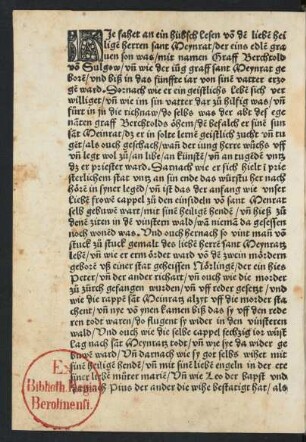 Hie fahet an ein hübsch lesen võ dẽ liebẽ hei
ligẽ herren sant Meynrat/der eins edlẽ gra
uen son was/mit namen Graff Berchtold
võ Sulgow/vñ wie der iũg graff sant Meynrat ge
borẽ/vnd biß in das fünffte iar von sinẽ vatter erzo
gẽ ward. Darnach wie er ein geistlichs lebẽ sich ver
williget/vñ wie im sin vatter dar zů hilfig was/vñ
fürt in zů die richnaw/do selbs was der abt des ge
nãten graff Berchtolds ohẽm/dẽ befalch er sinẽ sun
sãt Meinrat/dz er in solte lernẽ geistlich zucht vñ tu
gẽt/als ouch geschach/wañ der iung herre wůchs vff
vñ legt wol zů/an libe/an künstẽ/vñ an tugẽdẽ vntz
dz er priester ward. Darnach wie er sich hielt
sterlichem stat vntz an sin ende das würst ir her nach
hörẽ in syner legẽd/vñ ist das der anfang wie vnser
liebẽ frowẽ cappel zů den einsideln võ sant Menrat
selb gebuwẽ wart/mit sinẽ heiligẽ hendẽ/vñ hieß zů
denẽ zitẽn in dẽ vinstern wald/wã niemã da gesessen
noch wonẽd was. Vnd ouch hernach so vint man võ
stuck zů stuck gemalt des liebẽ herrẽ sant Meynratz
lebẽ/vñ wie er ermördet ward võ dẽ zwein mördern
geborẽ vß einer stat geheissen Nörlinge/der ein hies
Peter/vñ der ander richart/vñ ouch wie die mörder
zů zürch gefangen wurden/vñ vff reder gesetzt/vnd
wie die rappẽ sãt Meinratz alzyt vff die mörder sta
chent/vñ nye võ ynen kamen biß das sy vff den rede
ren todt warẽ/do flugent sy wider in den vinsteren
wald/Vnd ouch wie die selbe cappel sechtzig ior wüst
lag nach sãt Meynratz todt/vñ wie sye da wider ge
buwẽ ward Vñ darnach wie sy got selbs wihet mit
sinẽ heiligẽ hendẽ/vñ mit sinẽ liebẽ engeln in der ere
siner liebẽ můter marie/Vñ wie Leo der bapst vnd
darnach Pius der ander die wihe bestatigt hat/als
Ex
Biblioth. Regia
Berolinensi.